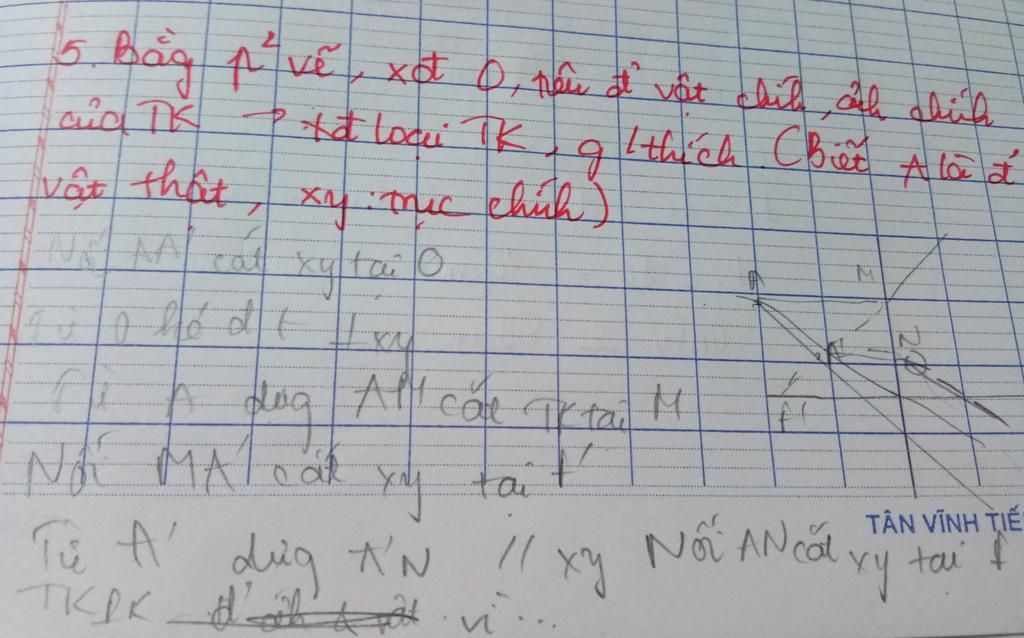 5. Bằg p² vẽ, xđ O, tiêu đ' vật chíh, ảnh chính
của TK → xđ loại TK, g/thích (Biết A là đ'
vật thật, xy: trục chíh)
Nối AA' cắt xy tại O
Từ O kẻ đt ⊥ xy
Từ A dựg AM cắt TK tại M
Nối MA' cắt xy tại f'
Từ A' dựg A'N // xy Nối AN cắt xy tại f
TKPK vì...
A
M
A'
N
f'
TÂN VĨNH TIẾ